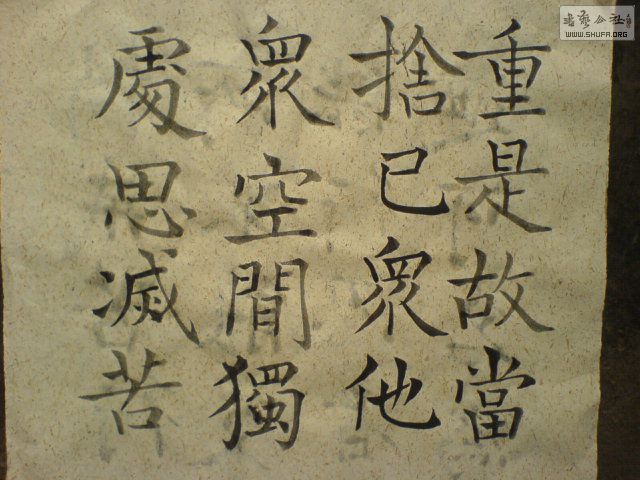 重是故當
捨已衆他
衆空間獨
處思滅苦
書藝公社
WWW.SHUFA.ORG